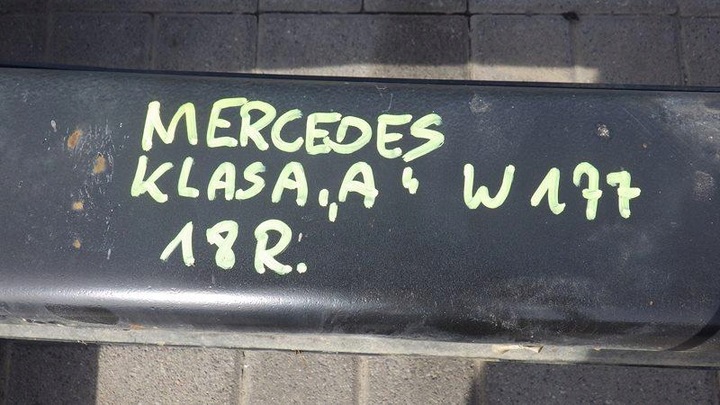 MERCEDES
KLASA „A“ W177
18R.